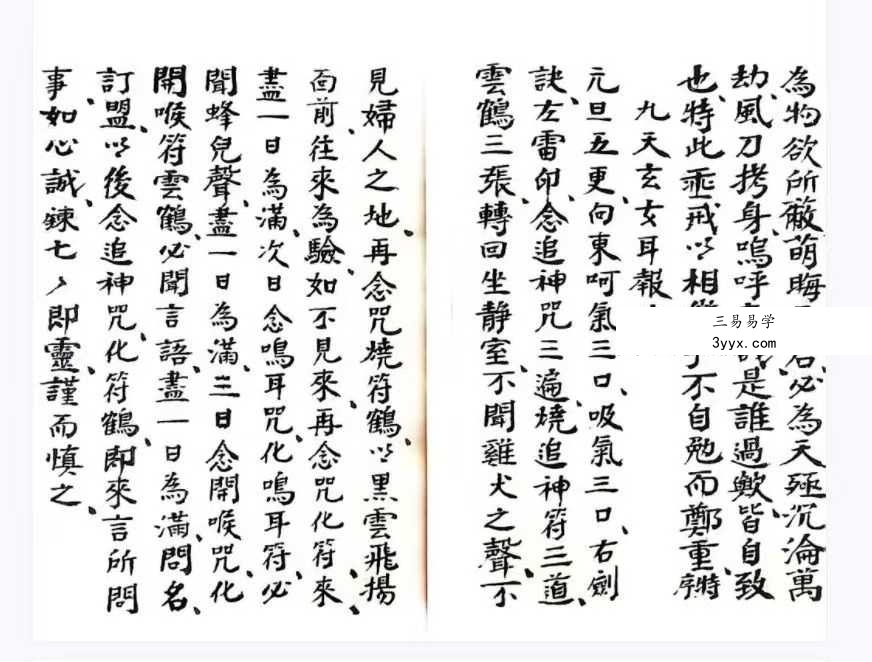 為物欲所蔽萌晦
必為天殛沉淪萬
劫、風刀拷身、嗚呼
是誰過歟、皆自致
也、特此垂戒以相
不自勉而鄭重
特序
九天玄女耳報
元旦五更向東呵氣三口、吸氣三口、右劍
訣、左雷印、念追神咒三遍、燒追神符三道、
雲鶴三張、轉回坐静室、不聞雞犬之聲、不
見婦人之地、再念咒燒符鶴、以黑雲飛揚
面前、往來為驗、如不見來、再念咒化符、來、
盡一日為滿、次日念鳴耳咒、化鳴耳符、必
聞蜂兒聲、盡一日為满、三日念開喉咒、化
開喉符雲鶴、必聞言語、盡一日為满、問名、
訂盟、以後念追神咒、化符鶴、即來言所問
事、如心誠、鍊七々即靈、謹而慎之、
三易易学
3yyx.com